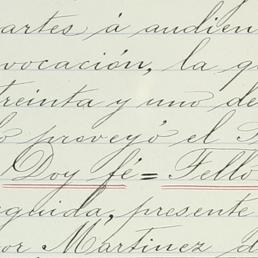 artes á audien
vocación, la q
treinta y uno de
lo proveyó el
Doy fé = Tello
eguida, presente
or Martinez d